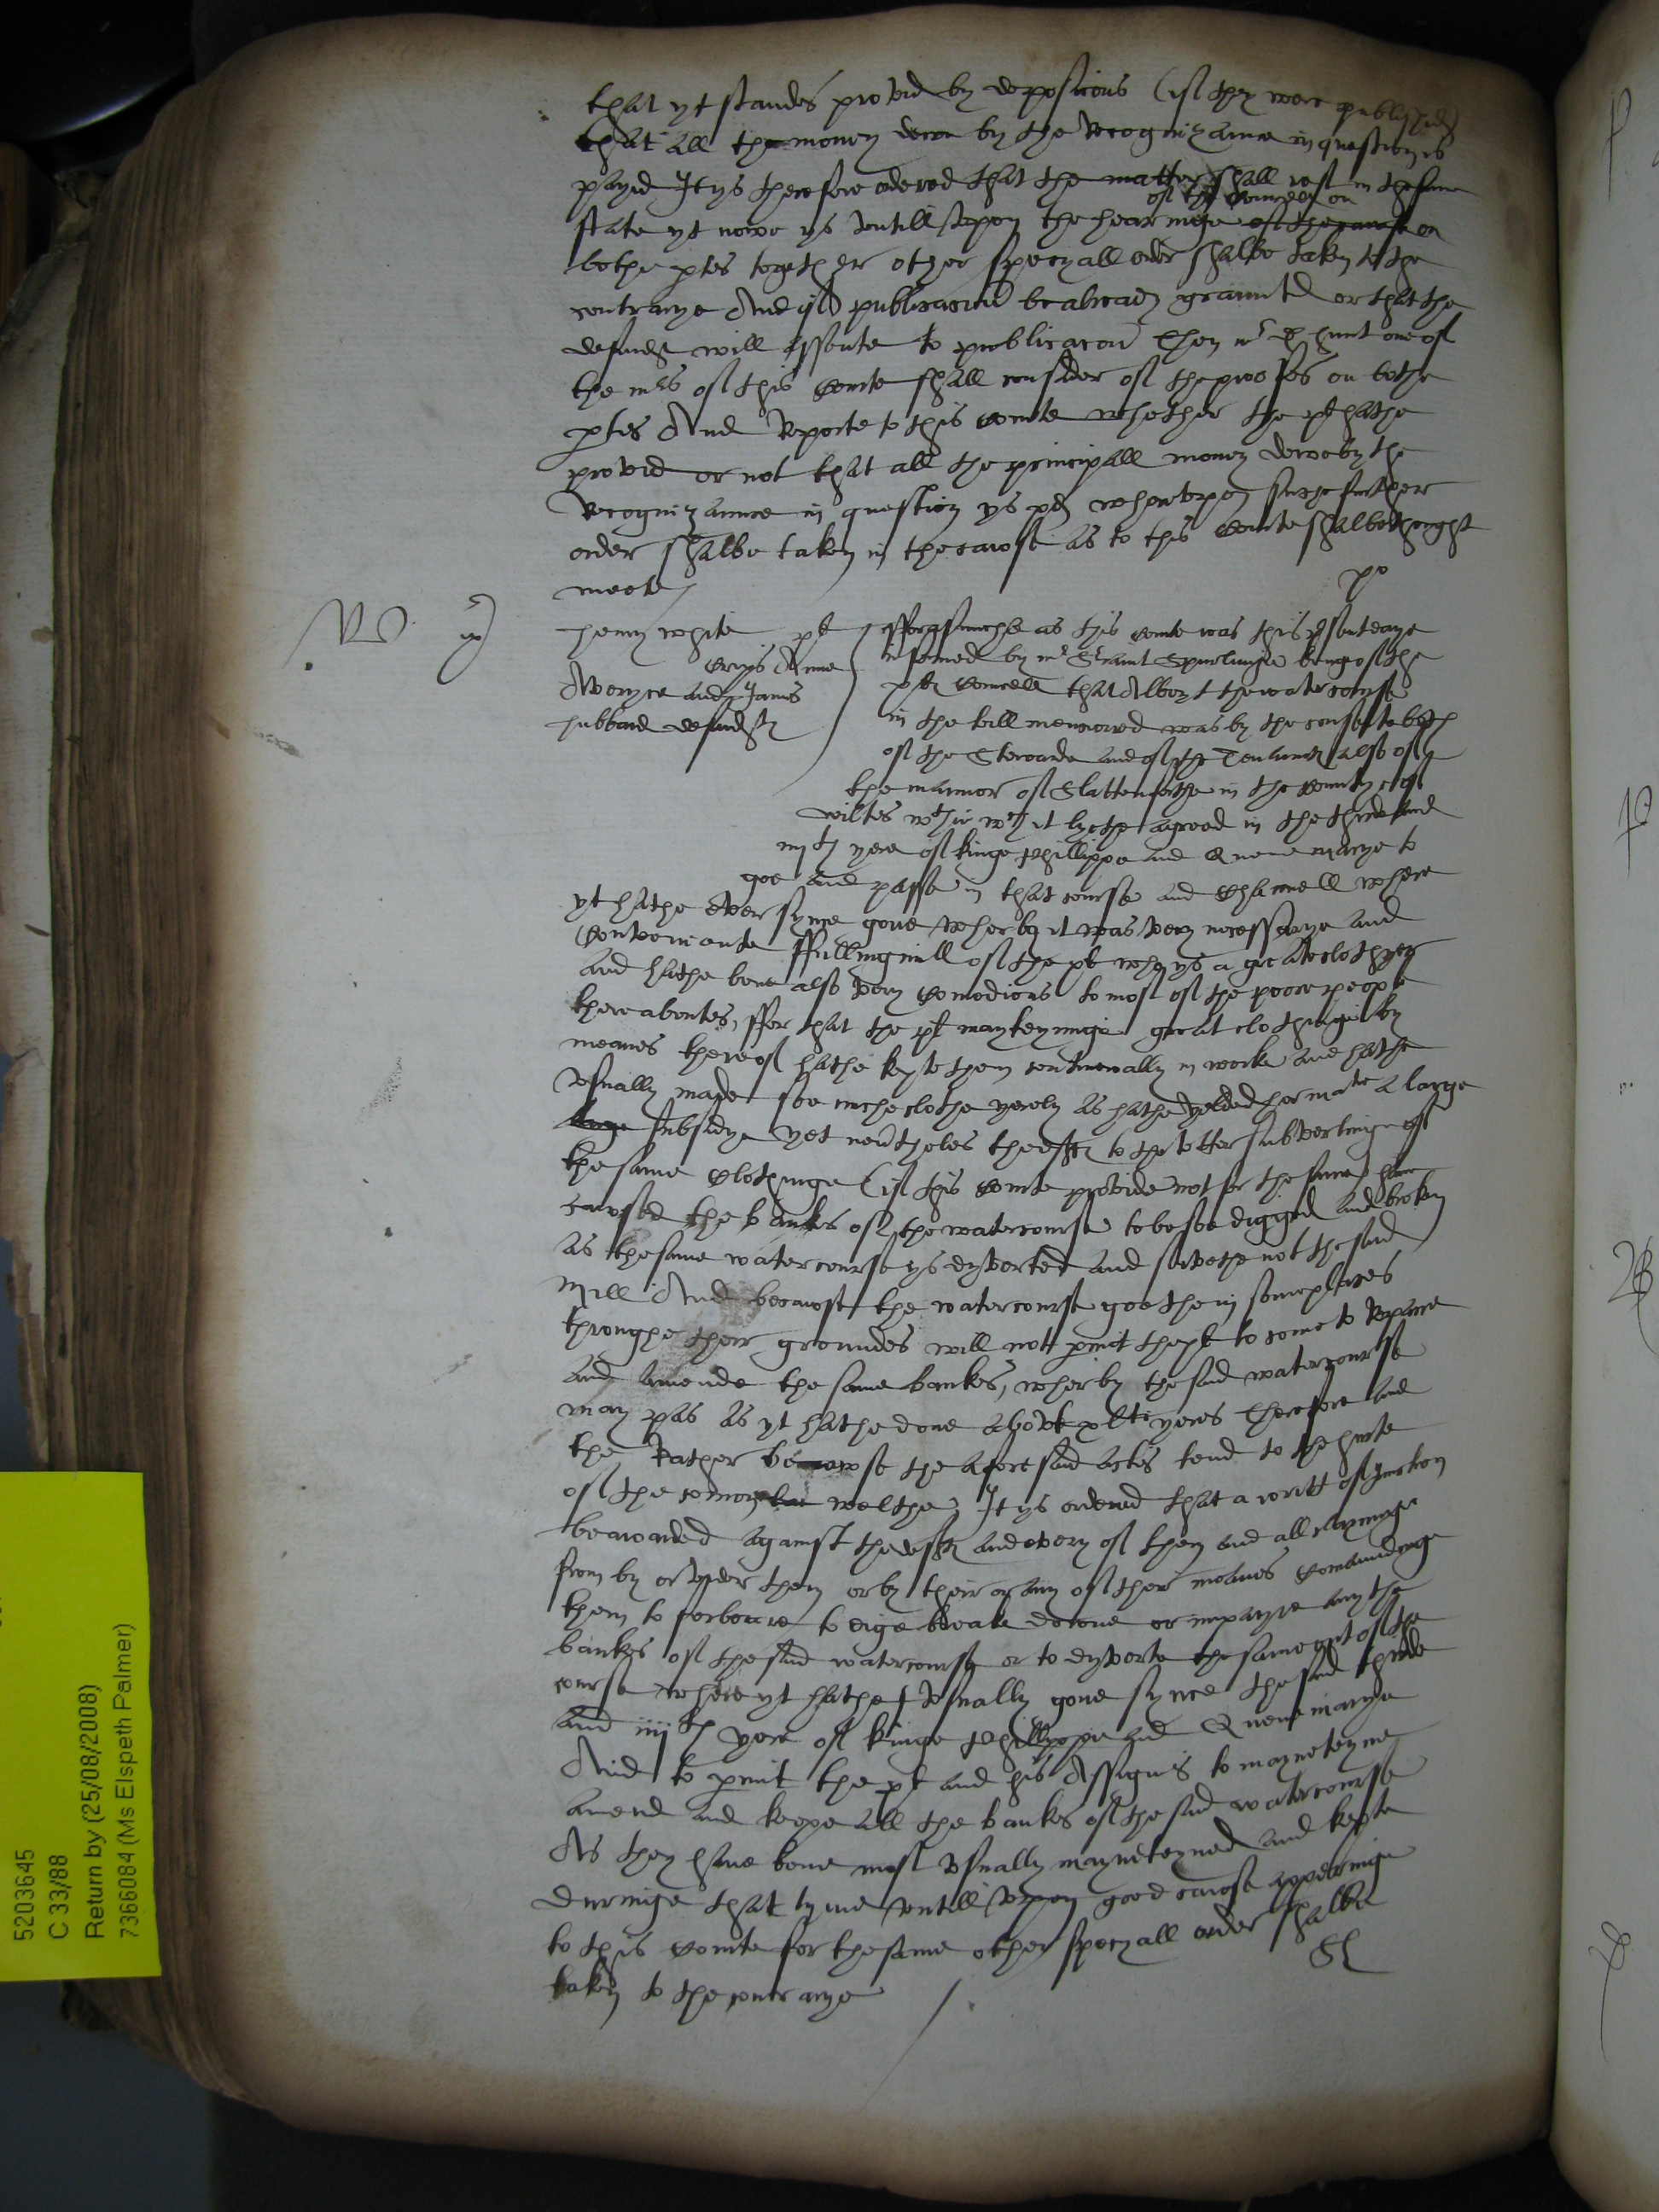 that yt standes proved by deposicons (if they were published)
that all the money dewe by the Recognizaunce in question is
payed It ys therefore ordered that the matter shall rest in the same
of the councell on
state yt nowe ys untill upon the hearinge of the cause on
bothe ptes together other specyall order shalbe taken to the
contrarye And if publicacon be already graunted or that the
defendt will assente to publicacon Then mr hunt one of
the mrs of this Courte shall consider of the proofes on bothe
ptes And Reporte to this Courte whether the plt hathe
proved or not that all the principall money dewe by the
Recognizaunce in question ys pd whereupon suche further
order shalbe taken in the cause as to this Courte shalbe thought
meete
henry white plt
Anne
Averyce and James
hubbard defendtes
fforasmuche as this Courte was this psent daye
informed by mr Sriaunt Spurlinge beinge of the
plts Councell that Albeyt the watercourse
in the bill mencioned was by the consente both
of the Stewarde and of the Tenauntes also of
the mannor of Slattenforthe in the County of
wiltes wthin wch it lyethe agreed in the thirde and
iiijth yere of kinge Phillippe and Quene marye to
goe and passe in that course and Channell where
yt hathe ever synce gone wherby it was very necessarye and
Convenionte ffullingmill of the plt who ys a greate clothyer
and hathe bene also very Comodious to most of the poore people
thereaboutes, ffor that the plt mayteyninge great clothinge by
meanes thereof hathe kepte them contynewally in worke and hathe
usually made soe muche clothe yerely as hathe yelded her matie a large
large subsidye yet nevtheles the defts to the utter subvertinge of
the same Clothinge (if this Courte provide not for the same) have
caused the bankes of the watercourse to be soe digged and broken
as the same watercourse ys dyverted and serveth not the said
Mill And because the watercourse goethe in some places
throughe their groundes will nott pmit the plt to come to Repaire
and amende the same bankes, wherby the said watercourse
may pas as yt hathe done above xlti yeres Therefore and
the Rather because the aforesaid actes tend to the hurte
of the comon welthe, It ys ordered that a writt of Iniunction
be awarded against the defts and every of them and all clayminge
from by or under them or by their or any of ther meanes Comaundinge
them to forbeare to dige breake downe or impayre any the
bankes of the said watercourse or to dyverte the same out of the
course where yt hathe usually gone synce the said thirde
and iiijth yere of kinge Phillyppe and Quene marye
And to pmit the plt and his Assignes to maynteyne
amend and keepe all the bankes of the said watercourse
As they have bene most usually maynteyned and kepte
duringe that tyme untill upon good cause appearinge
to this Courte for the same other specyall order shalbe
taken to the contrarye
5203645
C 33/88
Return by (25/08/2008)
7366084 (Ms Elspeth Palmer)